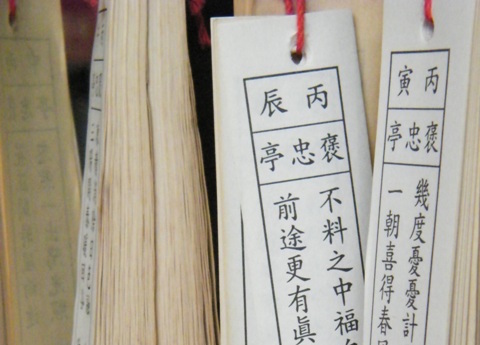 丙寅
褒忠亭
幾度憂憂計
一朝喜得春
丙辰
褒忠亭
不料之中福
前途更有眞